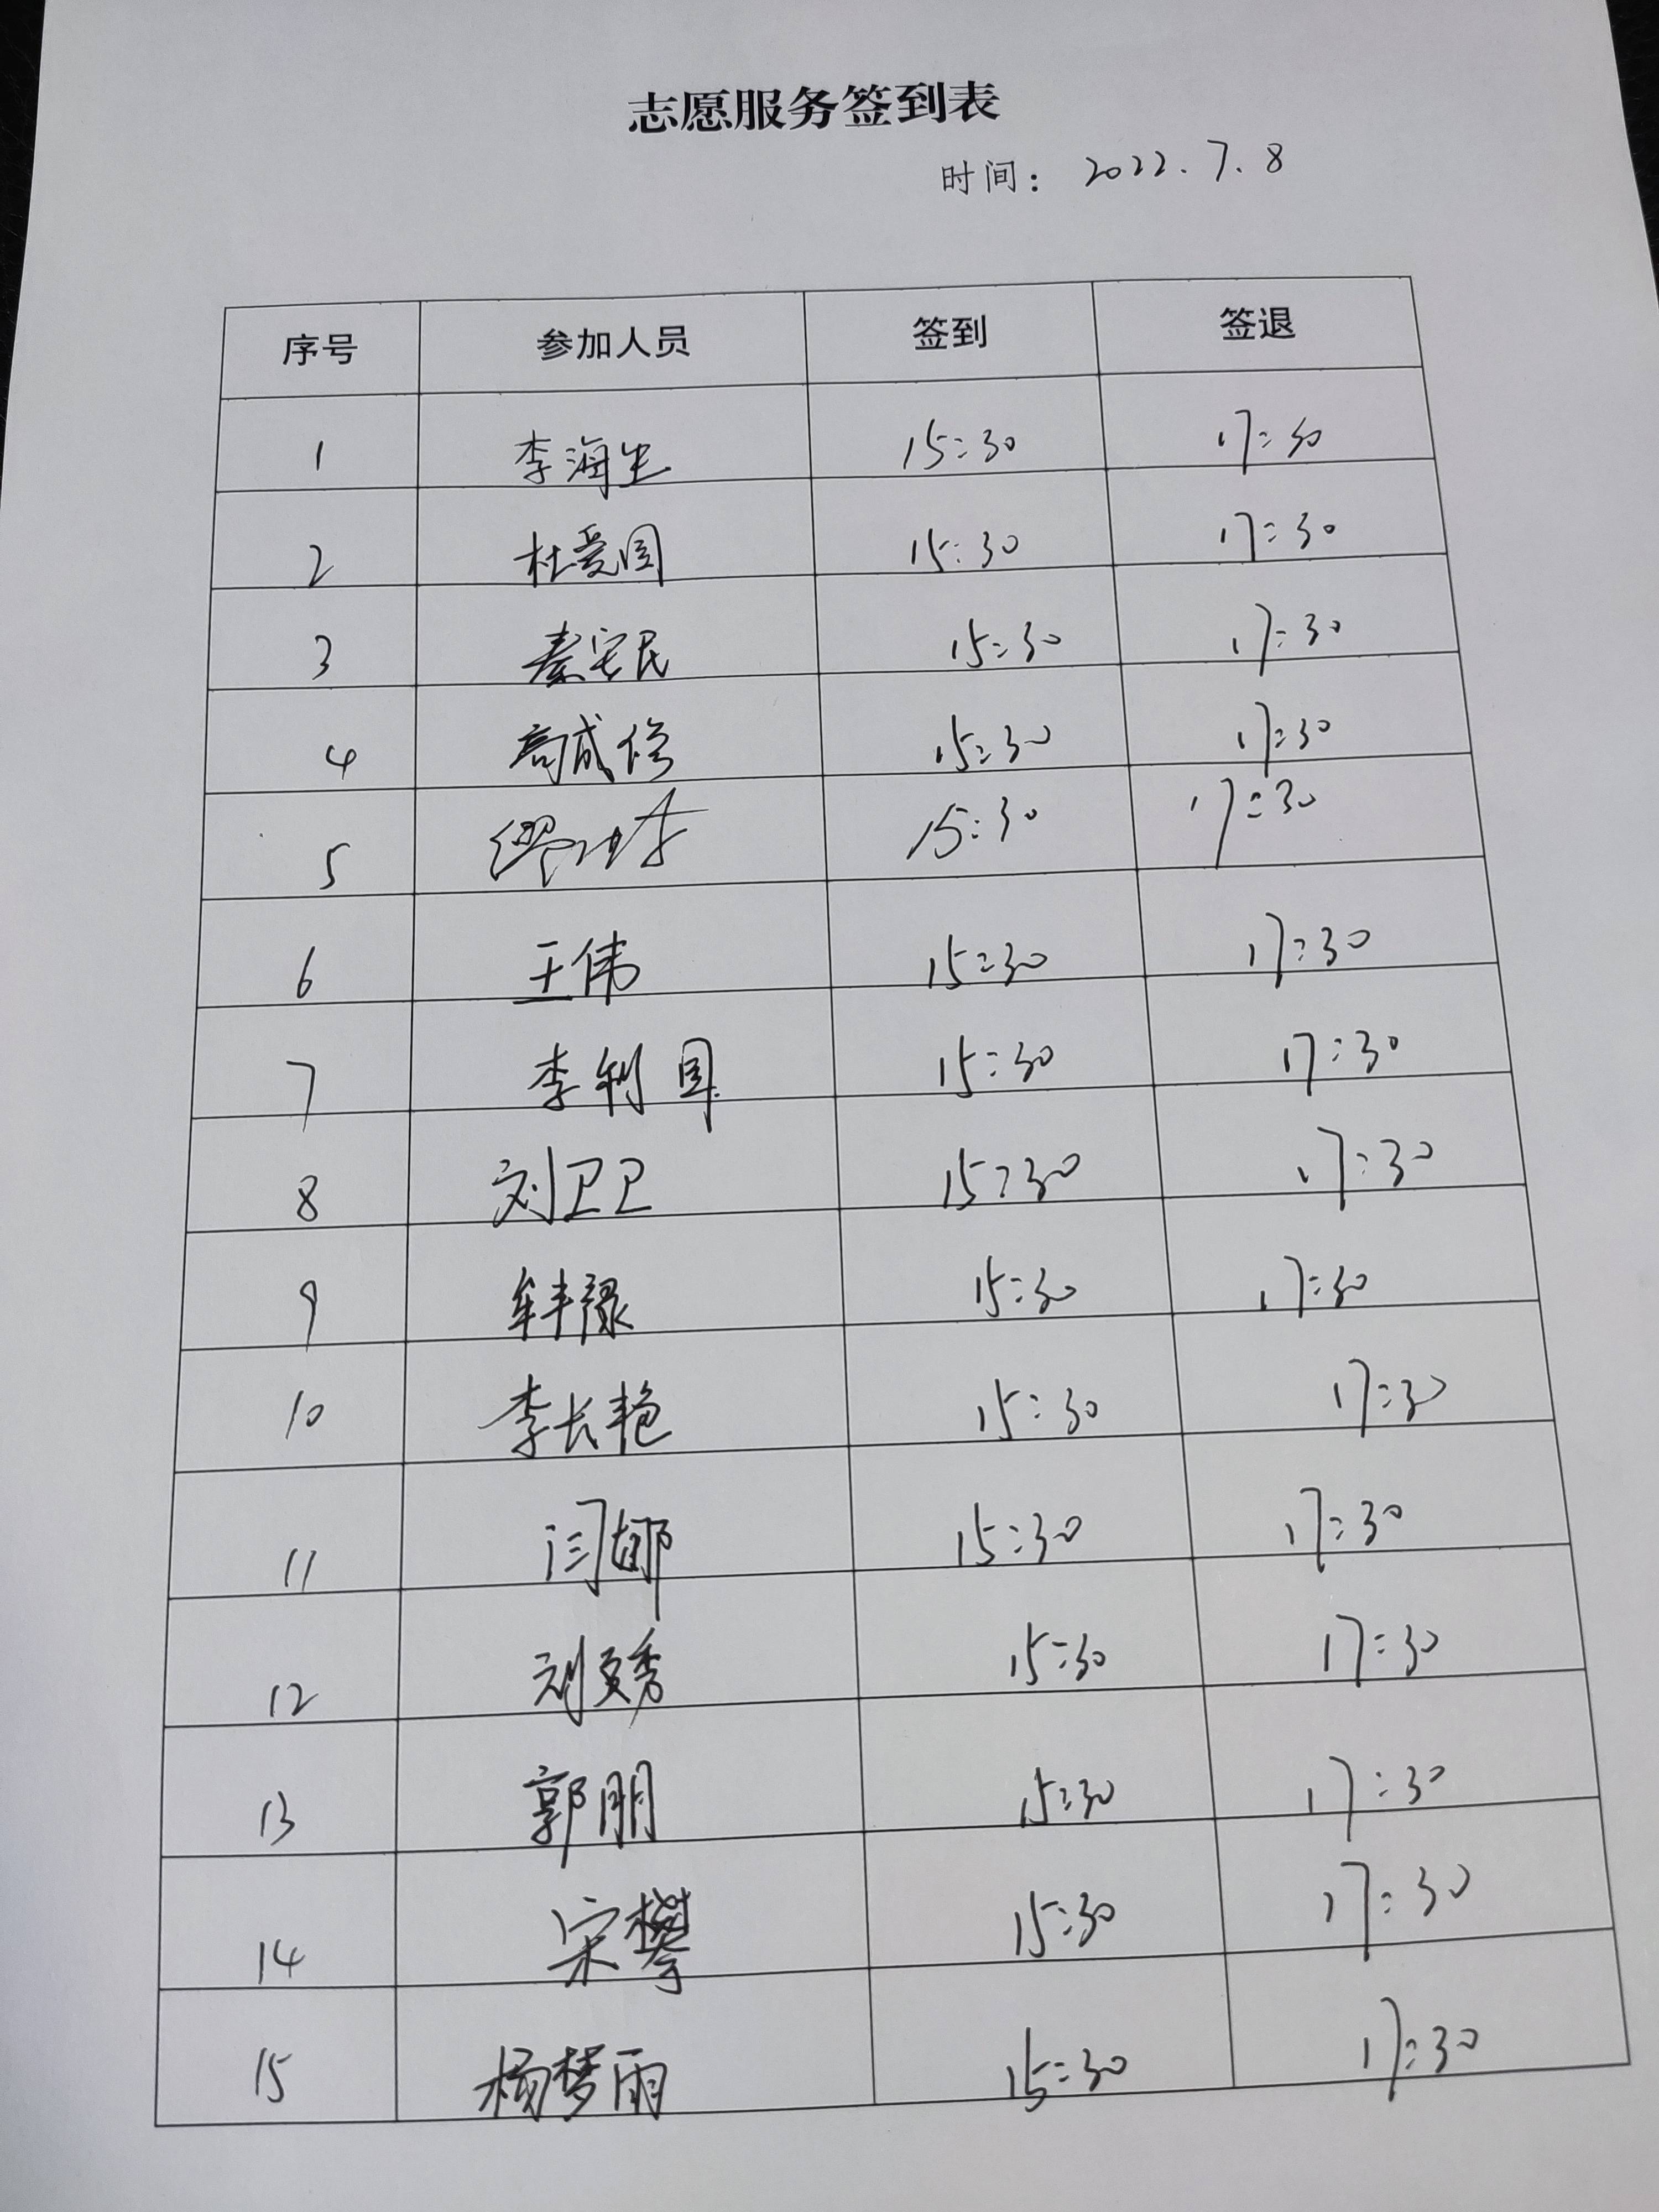 志愿服务签到表
时间： 2022.7.8
序号 参加人员 签到 签退
1 李海生 15:30 17:30
2 杜爱国 15:30 17:30
3 秦安民 15:30 17:30
4 高成修 15:30 17:30
5 15:30 17:30
6 王伟 15:30 17:30
7 李利国 15:30 17:30
8 刘卫卫 15:30 17:30
9 牟丰禄 15:30 17:30
10 李长艳 15:30 17:30
11 闫娜 15:30 17:30
12 刘文秀 15:30 17:30
13 郭朋 15:30 17:30
14 宋攀 15:30 17:30
15 杨梦雨 15:30 17:30